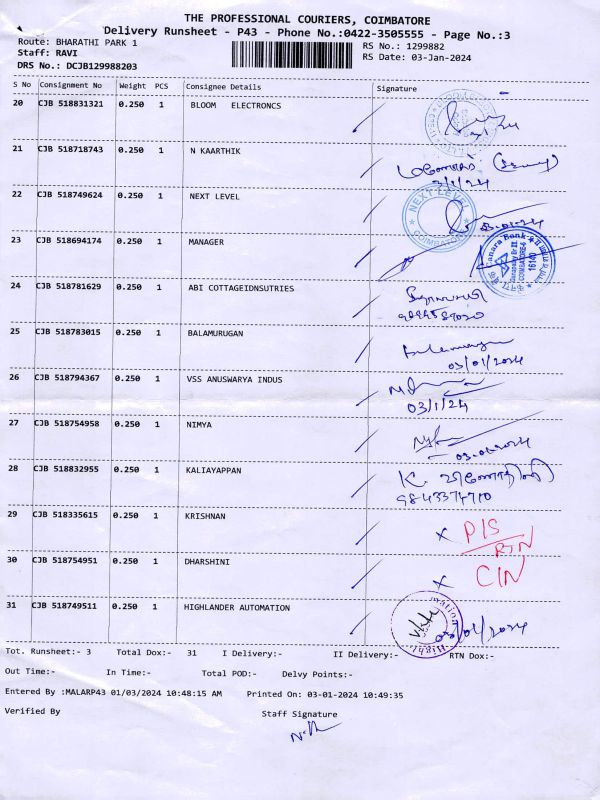 THE PROFESSIONAL COURIERS, COIMBATORE
Delivery Runsheet - P43 - Phone No.:0422-3505555 - Page No.:3
Route: BHARATHI PARK 1 RS No.: 1299882
Staff: RAVI RS Date: 03-Jan-2024
DRS No.: DCJB129988203
S No Consignment No Weight PCS Consignee Details Signature
20 CJB 518831321 0.250 1 BLOOM ELECTRONCS
21 CJB 518718743 0.250 1 N KAARTHIK
22 CJB 518749624 0.250 1 NEXT LEVEL
NEXT LEVEL
COIMBATORE
23 CJB 518694174 0.250 1 MANAGER
Canara Bank
24 CJB 518781629 0.250 1 ABI COTTAGEIDNSUTRIES
25 CJB 518783015 0.250 1 BALAMURUGAN
03/01/2024
26 CJB 518794367 0.250 1 VSS ANUSWARYA INDUS
03/1/24
27 CJB 518754958 0.250 1 NIMYA
28 CJB 518832955 0.250 1 KALIAYAPPAN
9843374710
29 CJB 518335615 0.250 1 KRISHNAN x P/S
RTN
30 CJB 518754951 0.250 1 DHARSHINI x C/N
31 CJB 518749511 0.250 1 HIGHLANDER AUTOMATION
Tot. Runsheet:- 3 Total Dox:- 31 I Delivery:- II Delivery:- RTN Dox:-
Out Time:- In Time:- Total POD:- Delvy Points:-
Entered By :MALARP43 01/03/2024 10:48:15 AM Printed On: 03-01-2024 10:49:35
Verified By Staff Signature